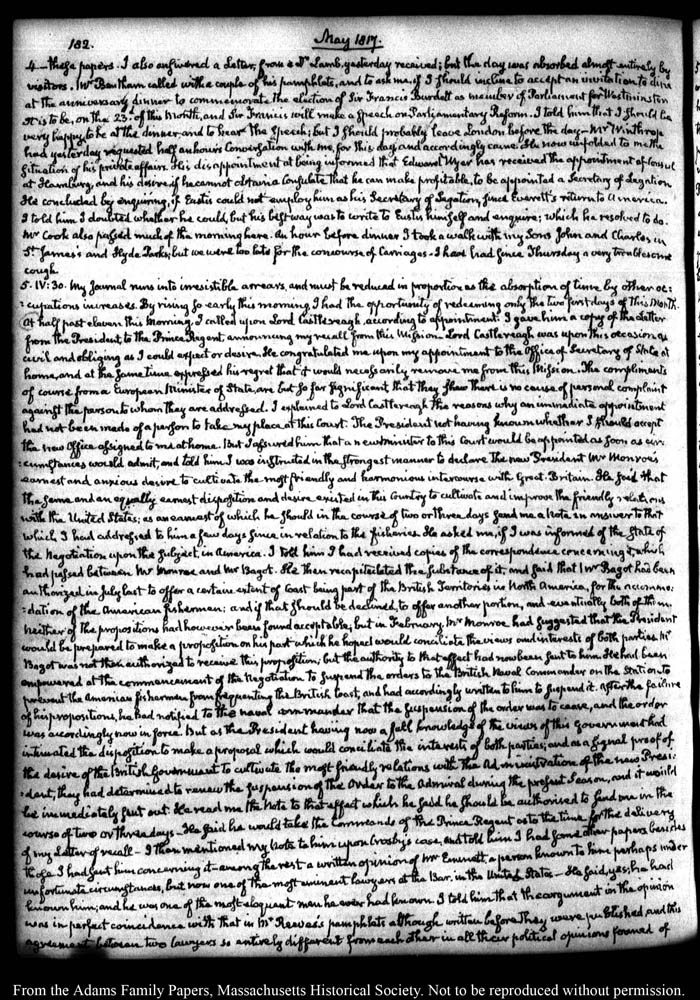 182.
May 1817.
4 — these papers. I also answered a Letter, from a Dr Lamb, yesterday received; but the day was absorbed almost entirely by
visitors. Mr Bentham called with a couple of his pamphlets, and to ask me, if I should incline to accept an invitation to dine
at the anniversary dinner to commemorate the election of Sir Francis Burdett as member of Parliament for Westminster
It is to be, on the 23d. of this Month, and Sir Francis will make a Speech on Parliamentary Reform. I told him that I should be
very happy to be at the dinner, and to hear the Speech; but I should probably leave London before the day — Mr Winthrop
had yesterday requested half an hours Conversation with me, for this day, and accordingly came. He now unfolded to me the
Situation of his private affairs. His disappointment at being informed that Edward Wyer has received the appointment of Consul
at Hamburg, and his desire, if he cannot obtain a Consulate that he can make profitable, to be appointed a Secretary of Legation
He concluded by enquiring, if Eustis could not employ him as his Secretary of Legation, since Everett's return to America.
I told him I doubted whether he could, but his best way was to write to Eustis himself and enquire; which he resolved to do.
Mr Cook also passed much of the morning here. An hour before dinner I took a walk with my Sons John and Charles in
St James's and Hyde Parks; but we were too late for the concourse of Carriages — I have had since Thursday a very troublesome
cough.
5. IV:30. My Journal runs into irresistible arrears, and must be reduced in proportion as the absorption of time by other oc:
:cupations increases. By rising so early this morning, I had the opportunity of redeeming only the two first days of this Month.
At half past eleven this Morning, I called upon Lord Castlereagh, according to appointment. I gave him a copy of the Letter
from the President, to the Prince Regent announcing my recall from this Mission — Lord Castlereagh was upon this occasion as
civil and obliging as I could expect or desire. He congratulated me upon my appointment to the Office of Secretary of State at
home, and at the same time expressed his regret that it would necessarily remove me from this Mission. The compliments
of course from a European Minister of State, are but so far significant that they shew there is no cause of personal complaint
against the person to whom they are addressed. I explained to Lord Castlereagh the reasons why an immediate appointment
had not been made of a person to take my place at this Court. The President not having known whether I should accept
the new Office assigned to me at home. But I assured him that a new minister to this Court would be appointed as soon as cir:
:cumstances would admit, and told him I was instructed in the strongest manner to declare the new President Mr Monroe's
earnest and anxious desire to cultivate the most friendly and harmonious intercourse with Great-Britain. He said that
the same and an equally earnest disposition and desire existed in this Country to cultivate and improve the friendly relations
with the United States; as an earnest of which he should in the course of two or three days send me a Note in answer to that
which I had addressed to him a few days since in relation to the fisheries. He asked me, if I was informed of the State of
the Negotiation upon the Subject, in America. I told him I had received copies of the correspondence concerning it, which
had passed between Mr Monroe and Mr Bagot. He then recapitulated the substance of it, and said that Mr Bagot had been
authorized in July last to offer a certain extent of Coast being part of the British Territories in North America, for the accommo:
:dation of the American fishermen; and if that should be declined, to offer another portion, and eventually both of them.
Neither of the propositions had however been found acceptable; but in February, Mr Monroe, had suggested that the President
would be prepared to make a proposition on his part which he hoped would conciliate the views and interests of both parties. Mr
Bagot was not then authorized to receive this proposition; but the authority to that effect had now been sent to him. He had been
empowered at the commencement of the Negotiation to suspend the orders to the British Naval Commander on the Station to
prevent the American fishermen from frequenting the British Coast, and had accordingly written to him to suspend it. After the failure
of his propositions, he had notified to the naval commander that the suspension of the order was to cease, and the order
was accordingly now in force. But as the President having now a full knowledge of the views of this Government had
intimated the disposition to make a proposal which would conciliate the interests of both parties; and as a signal proof of
the desire of the British Government to cultivate the most friendly relations with the Administration of the new Presi:
:dent, they had determined to renew the suspension of the Order to the Admiral during the present Season, and it would
be immediately sent out. He read me the Note to that effect which he said he should be authorised to send me in the
course of two or three days — He said he would take the commands of the Prince Regent as to the time for the delivery
of my Letter of recall — I then mentioned my Note to him upon Crosby's case, and told him I had some other papers besides
those I had sent him concerning it — among the rest a written opinion of Mr Emmett, a person known to him perhaps under
unfortunate circumstances, but now one of the most eminent lawyers at the Bar in the United State — He said, yes; he had
known him; and he was one of the most eloquent men he ever had known. I told him that the argument in the opinion
was in perfect coincidence with that in Mr Reeves's pamphlets although written before they were published and this
agreement between two lawyers so entirely different from each other in all their political opinions formed of
From the Adams Family Papers, Massachusetts Historical Society. Not to be reproduced without permission.